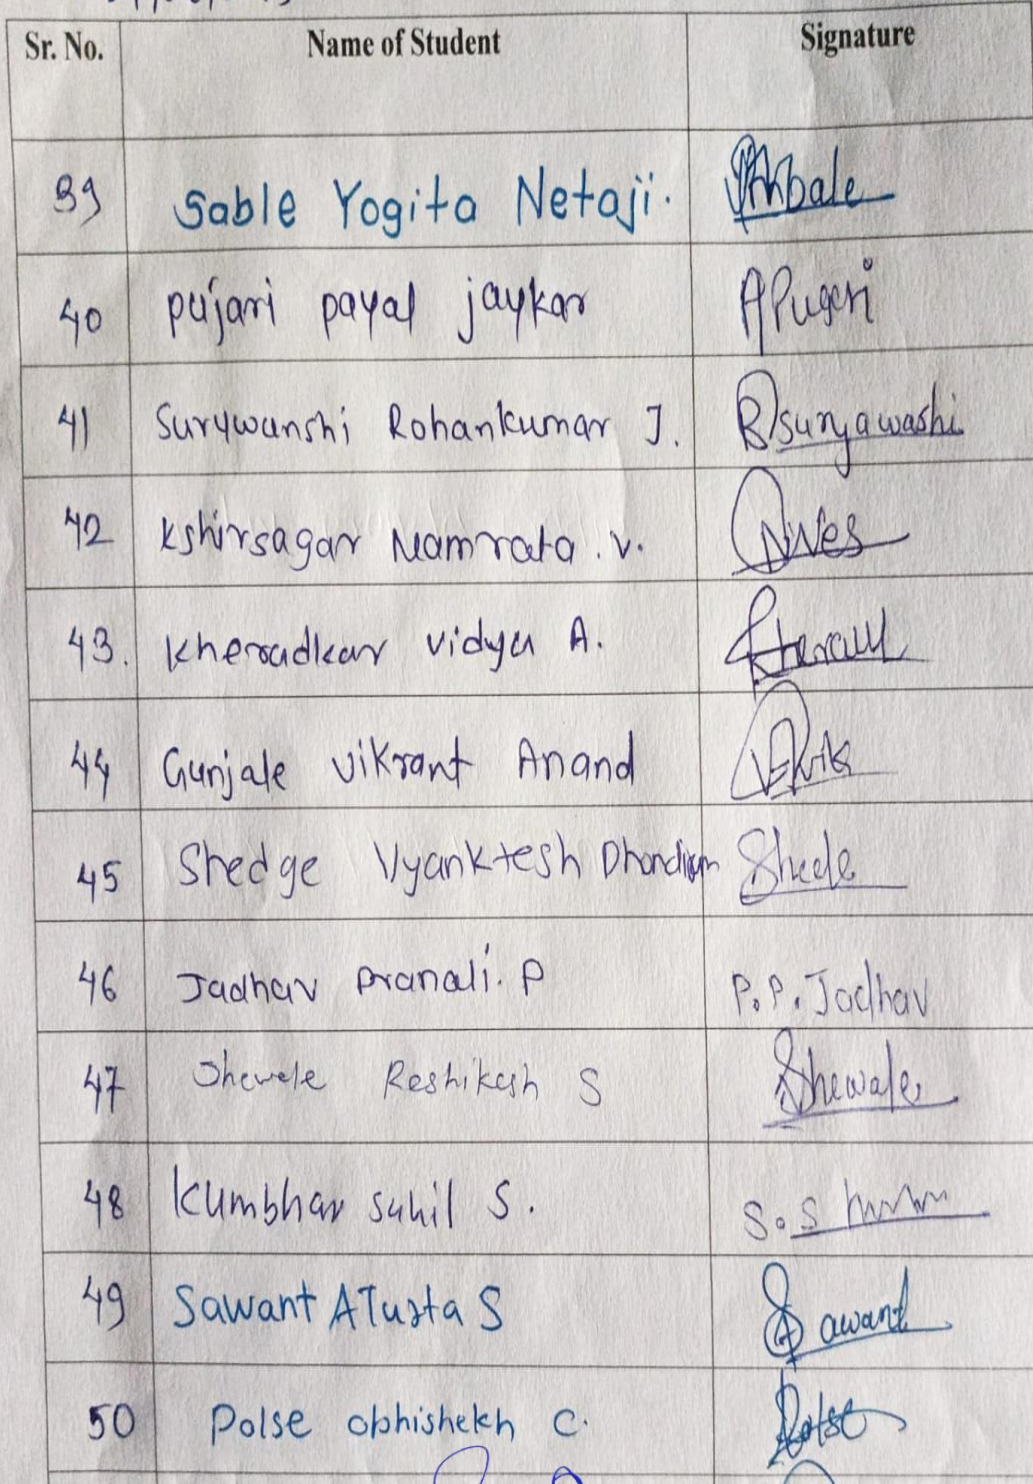 Sr. No. Name of Student Signature
39 Sable Yogita Netaji.
40 pujari payal jaykar APujari
41 Surywanshi Rohankumar J. R Suryawashi
42 Kshirsagar Namrata .V.
43. Kheradkar Vidya A.
44 Gunjale Vikrant Anand
45 Shedge Vyanktesh
46 Jadhav Pranali. P P. P. Jadhav
47 Shewale Reshikesh S Shewale
48 Kumbhar Sahil S. S. S
49 Sawant S Sawant
50 Polse abhishekh C. Polse